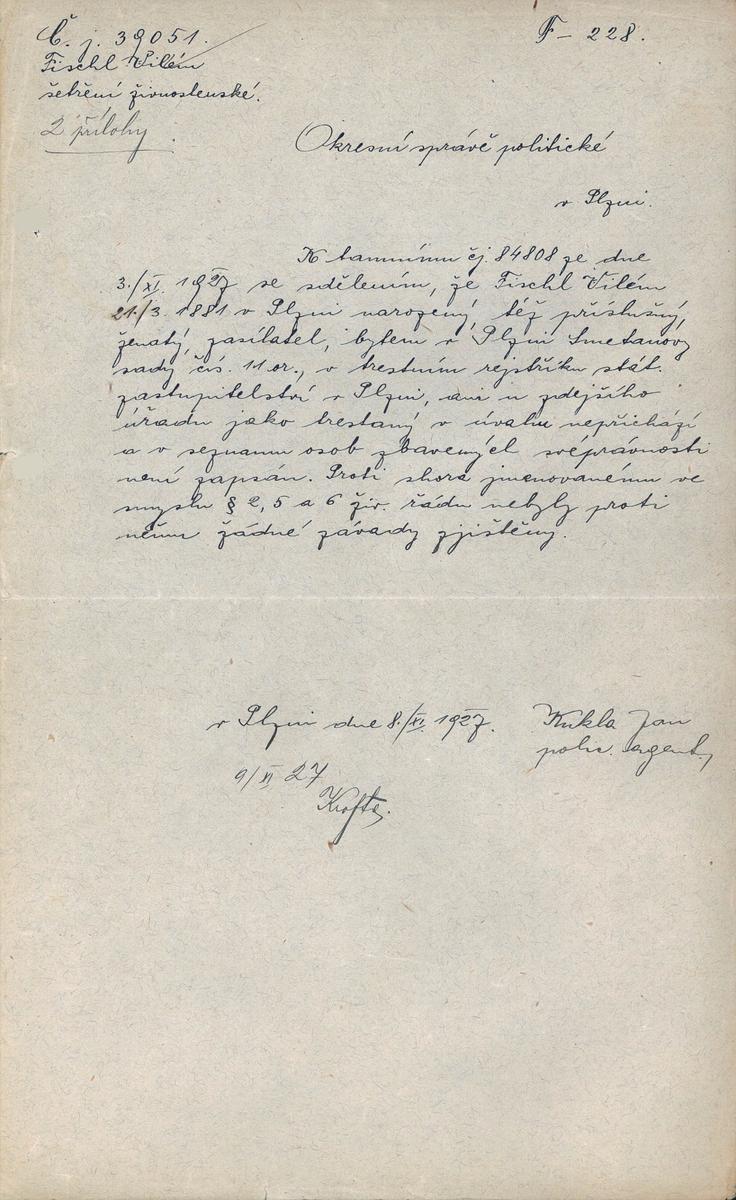 Č. j. 39051.
F - 228.
Fischl Vilém
šetření živnostenské.
2 přílohy
Okresní správě politické
v Plzni.
K tamnímu čj. 84808 ze dne
3./XI. 1927 se sdělením, že Fischl Vilém
21./3. 1881 v Plzni narozený, též příslušný,
ženatý, zasílatel, bytem v Plzni Smetanovy
sady čís. 11 or., v trestním rejstříku stát.
zastupitelství v Plzni, ani u zdejšího
úřadu jako trestaný v úvahu nepřichází
a v seznamu osob zbavených svéprávnosti
není zapsán. Proti shora jmenovanému ve
smyslu § 2, 5 a 6 živ. řádu nebyly proti
němu žádné závady zjištěny.
v Plzni dne 8./XI. 1927.
Kukla Jan
polic. agent.
9/XI 27
Krofta.